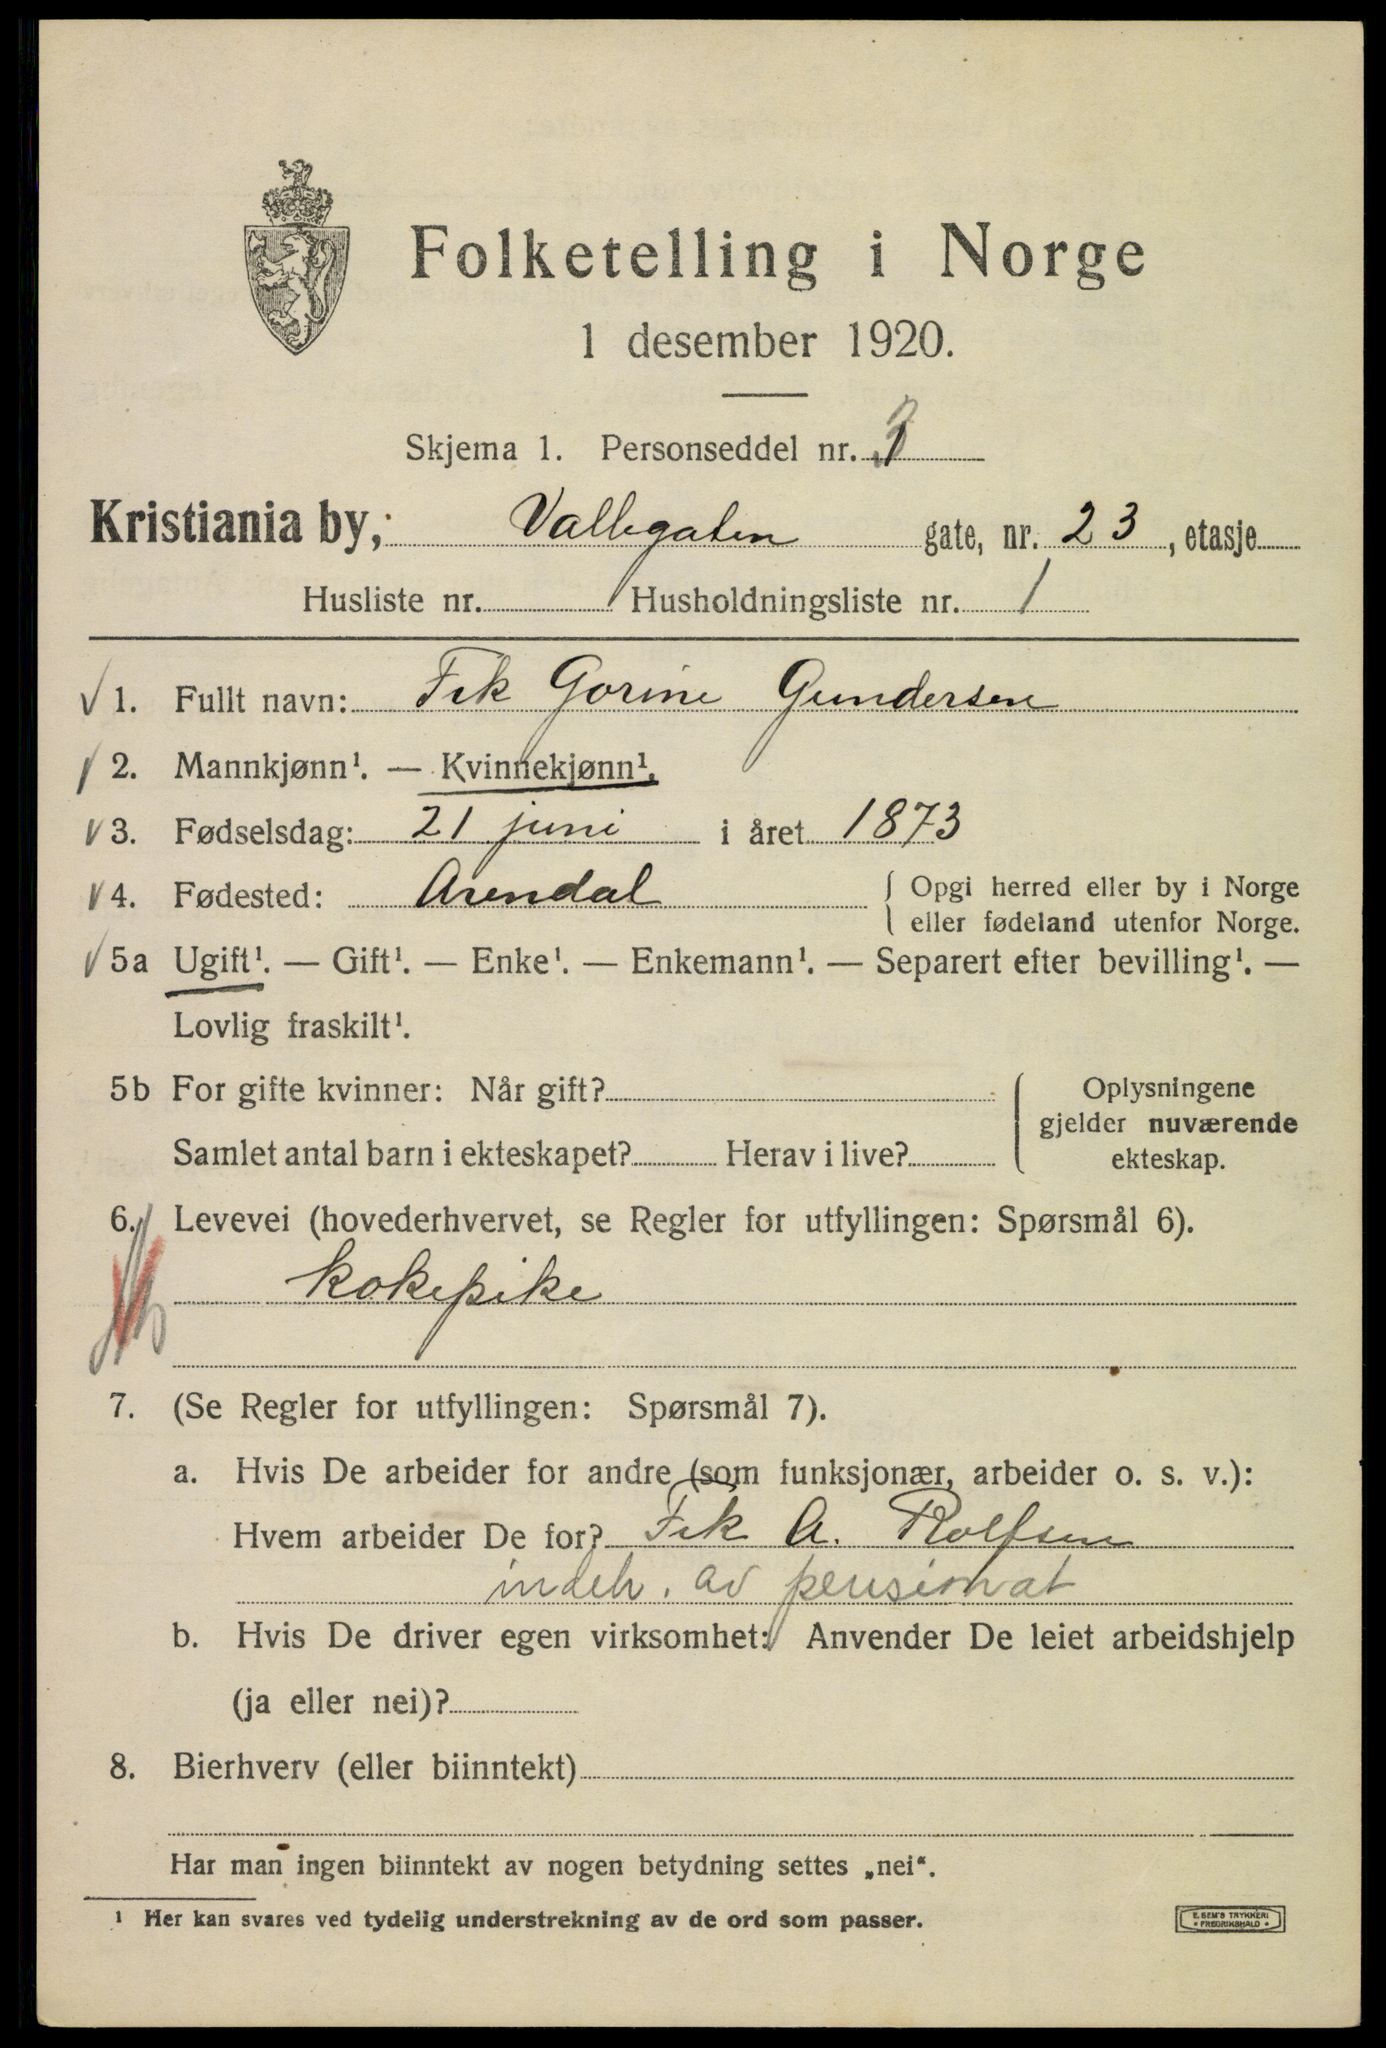 Folketelling i Norge
1 desember 1920.
Skjema 1. Personseddel nr. 3
Kristiania by, Vallegaten gate, nr. 23, etasje
Husliste nr. Husholdningsliste nr. 1
1. Fullt navn: Frk Gorine Gundersen
2. Mannkjønn¹. — Kvinnekjønn¹.
3. Fødselsdag: 21 juni i året 1873
4. Fødested: Arendal { Opgi herred eller by i Norge
eller fødeland utenfor Norge.
5a Ugift¹. — Gift¹. — Enke¹. — Enkemann¹. — Separert efter bevilling¹. —
Lovlig fraskilt¹.
5b For gifte kvinner: Når gift? Oplysningene
gjelder nuværende
Samlet antal barn i ekteskapet? Herav i live? ekteskap.
6. Levevei (hovederhvervet, se Regler for utfyllingen: Spørsmål 6).
kokepike
7. (Se Regler for utfyllingen: Spørsmål 7).
a. Hvis De arbeider for andre (som funksjonær, arbeider o. s. v.):
Hvem arbeider De for? Frk A. Rolfsen
indeh. av pensionat
b. Hvis De driver egen virksomhet: Anvender De leiet arbeidshjelp
(ja eller nei)?
8. Bierhverv (eller biinntekt)
Har man ingen biinntekt av nogen betydning settes „nei“.
¹ Her kan svares ved tydelig understrekning av de ord som passer.
E. SEM'S TRYKKERI
• FREDRIKSHALD •